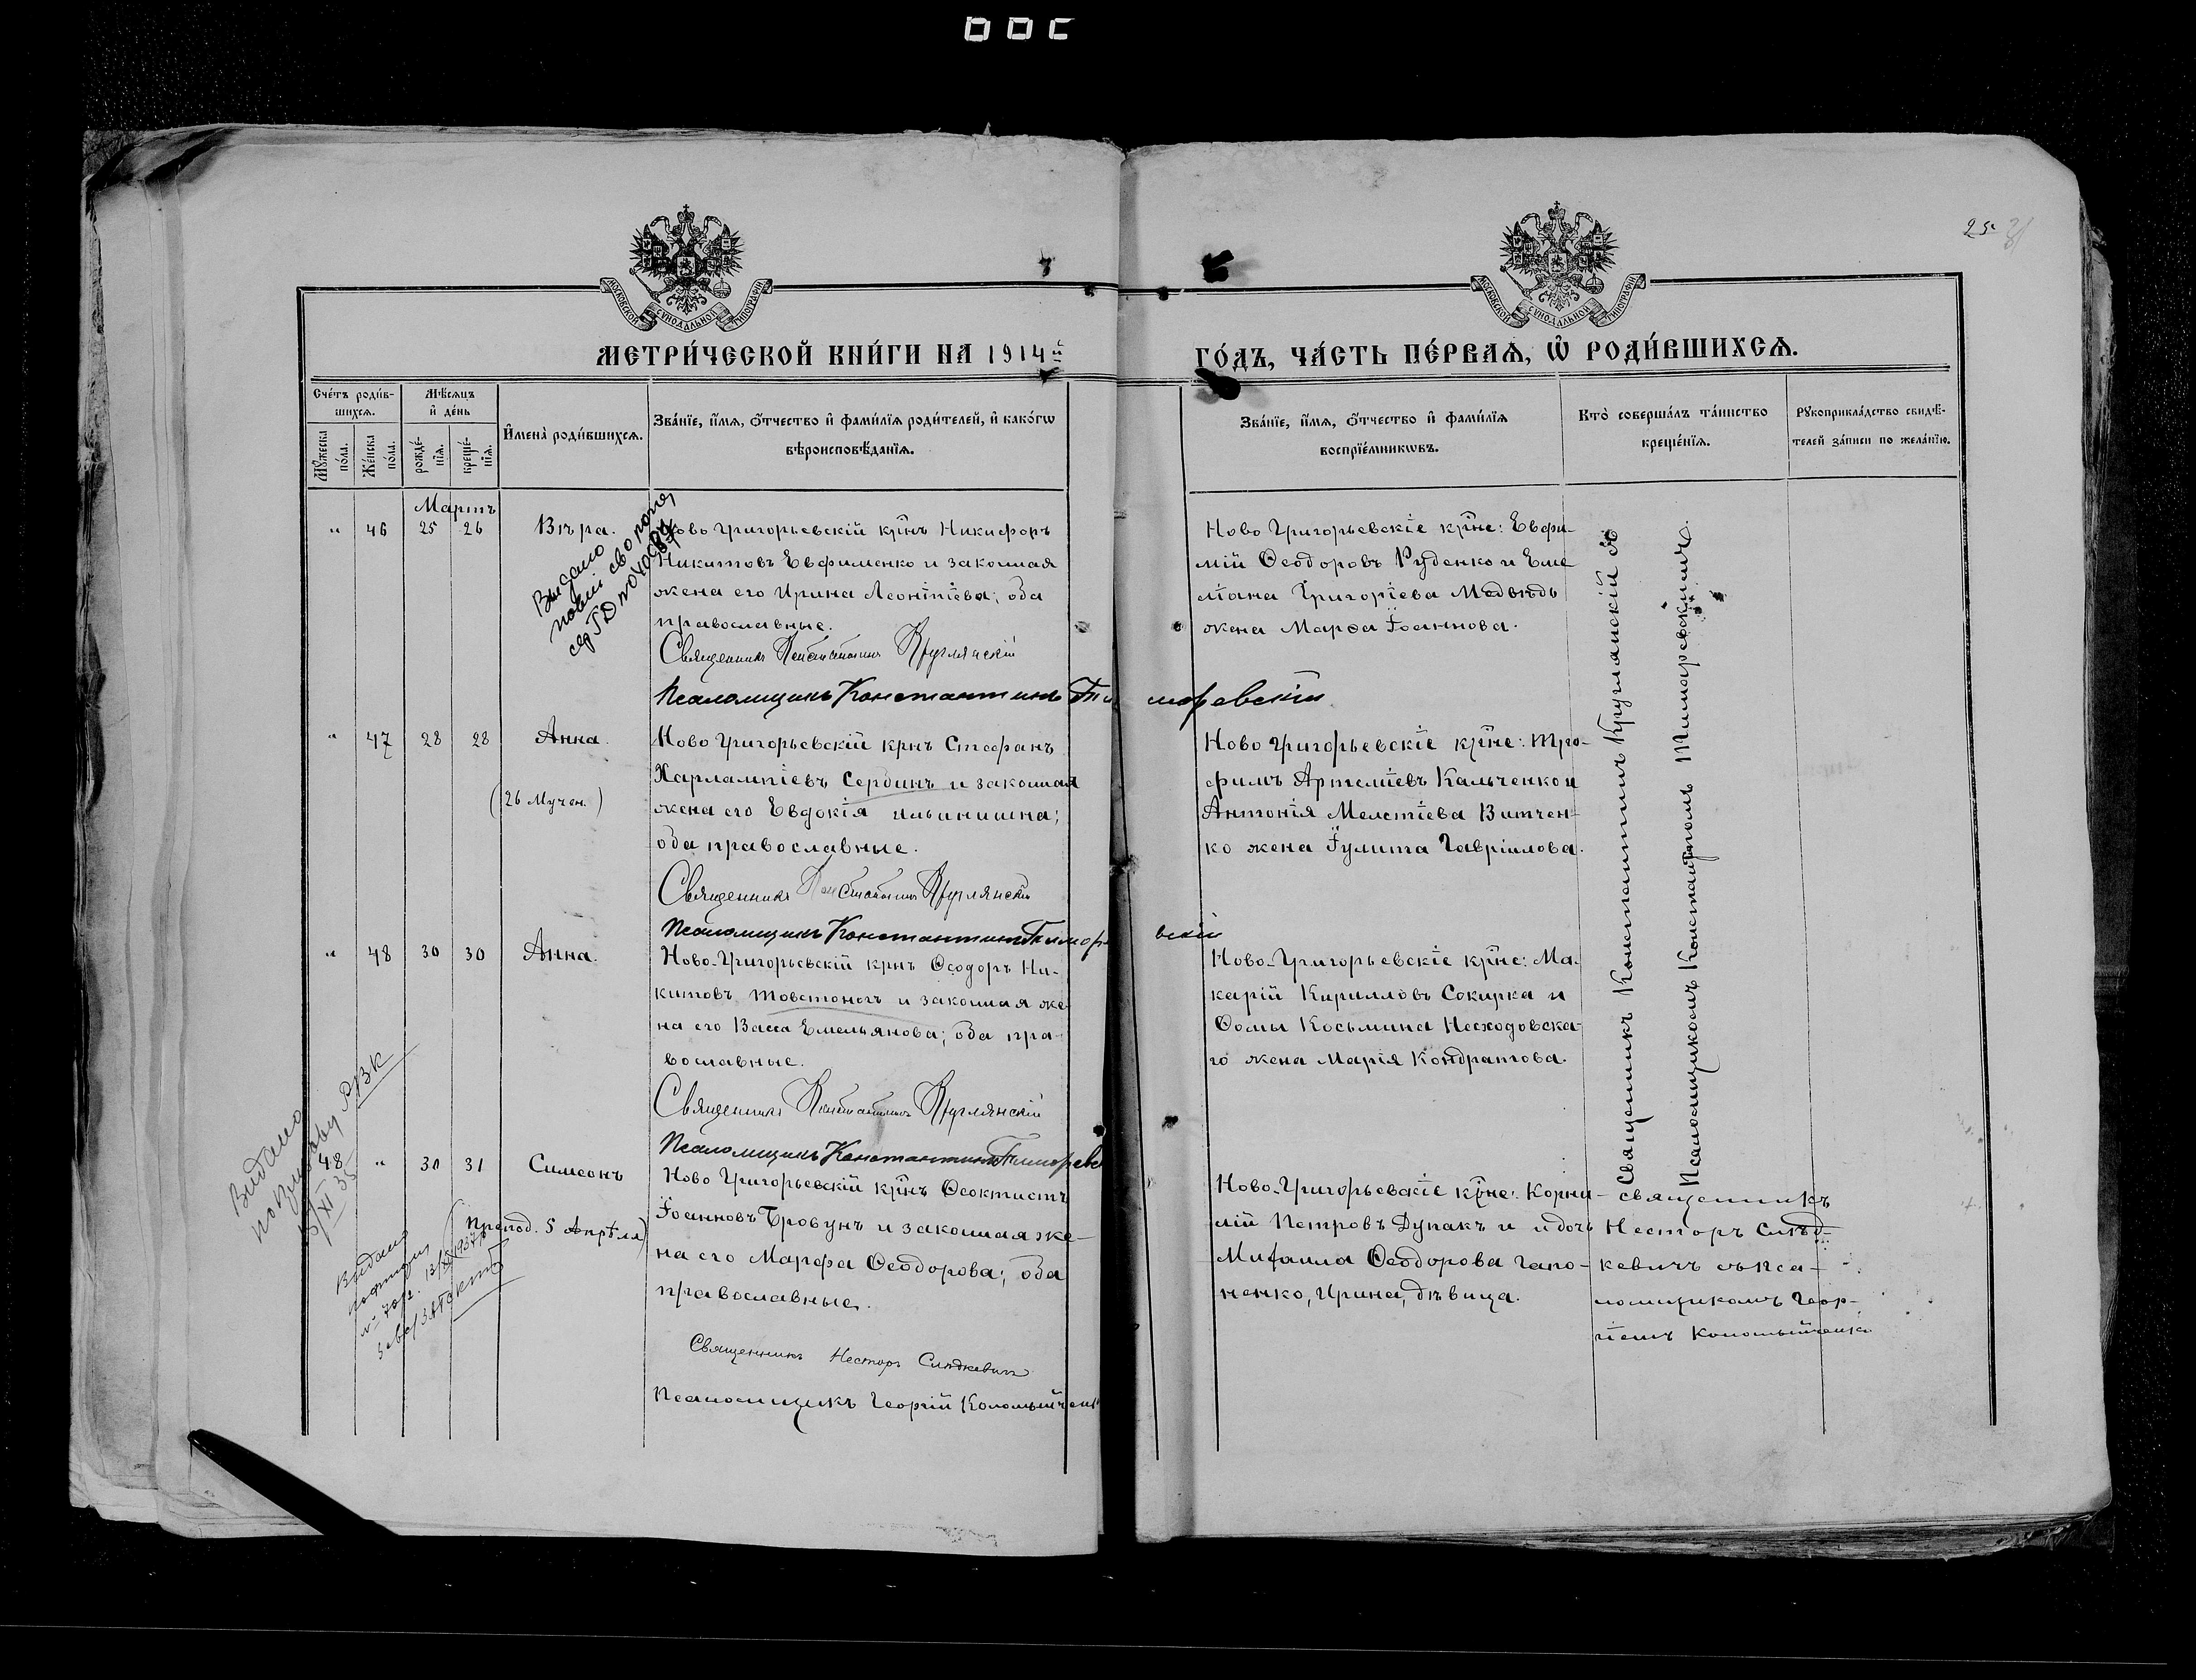 МОСКОВСКОЙ СѴНОДАЛЬНОЙ ТИПОГРАФІИ
МОСКОВСКОЙ СѴНОДАЛЬНОЙ ТИПОГРАФІИ
25
31
МЕТРИ́ЧЕСКОЙ КНИ́ГИ НА 1914й
ГО́ДЪ, ЧА́СТЬ ПЕ́РВАѦ, Ѡ҆ РОДИ́ВШИХСѦ.
Сче́тъ роди́в-
шихсѧ.
Мꙋ́жеска по́ла.
Же́нска по́ла.
Мѣ́сѧцъ
и҆ де́нь
рожде́-нїѧ.
креще́-нїѧ.
И҆мена̀ роди́вшихсѧ.
Зва́нїе, и҆́мѧ, ѻ҆́тчество и҆ фами́лїѧ роди́телей, и҆ како́гѡ
вѣроисповѣ́данїѧ.
Зва́нїе, и҆́мѧ, ѻ҆́тчество и҆ фами́лїѧ
воспрїе́мникѡвъ.
Кто̀ соверша́лъ та́инство
креще́нїѧ.
Рꙋкоприкла́дство свидѣ́-
телей за́писи по жела́нїю.
Мартъ
" 46 25 26 Вѣра.
Ново Григорьевскій крнъ Никифоръ
Никитовъ Евфименко и законная
жена его Ирина Леонтіева; оба
православные.
Священникъ Константинъ Круглянскій
Псаломщикъ Константинъ Тиморевскій
Выдано
Ново Григорьевскіе крне: Евфи-
мій Ѳеодоровъ Руденко и Еме
ліана Григоріева Медвѣдь
жена Марѳа Іоаннова.
" 47 28 28 Анна.
(26 Мучен.)
Ново Григорьевскій крнъ Стефанъ
Харлампіевъ Сердинъ и законная
жена его Евдокія Ильинишна;
оба православные.
Священникъ Константинъ Круглянскій
Псаломщикъ Константинъ Тиморевскій
Ново Григорьевскіе крне: Тро-
фимъ Артеміевъ Кальченко и
Антонія Мелетіева Витчен-
ко жена Іулита Гавріилова.
" 48 30 30 Анна.
Ново-Григорьевскій крнъ Ѳеодоръ Ни-
китовъ Товстоногъ и законная же
на его Васса Емельянова; оба пра-
вославные.
Священникъ Константинъ Круглянскій
Псаломщикъ Константинъ Тиморевс
Ново-Григорьевскіе крне: Ма-
карій Кирилловъ Сокирка и
Ѳомы Косьмина Несходовска-
го жена Марія Кондратова.
Священникъ Константинъ Круглянскій съ
Псаломщикомъ Константиномъ Тиморевскимъ.
48 " 30 31 Симеонъ
(Препод. 5 Апрѣля)
Ново Григорьевскій крнъ Ѳеоктистъ
Іоанновъ Бровунъ и законная же-
на его Марфа Ѳеодорова; оба
православные.
Священникъ Несторъ Слѣдкевичъ
Псаломщикъ Георгій Коломыйченк
Ново-Григорьевскіе крне: Корни-
лій Петровъ Дупакъ и дочь
Михаила Ѳеодорова Гапо-
ненко, Ирина, дѣвица.
священникъ
Несторъ Слѣд-
кевичъ съ пса-
ломщикомъ Геор-
гіемъ Коломыйченко
Видано
по РВК
5/XI 35
Видано